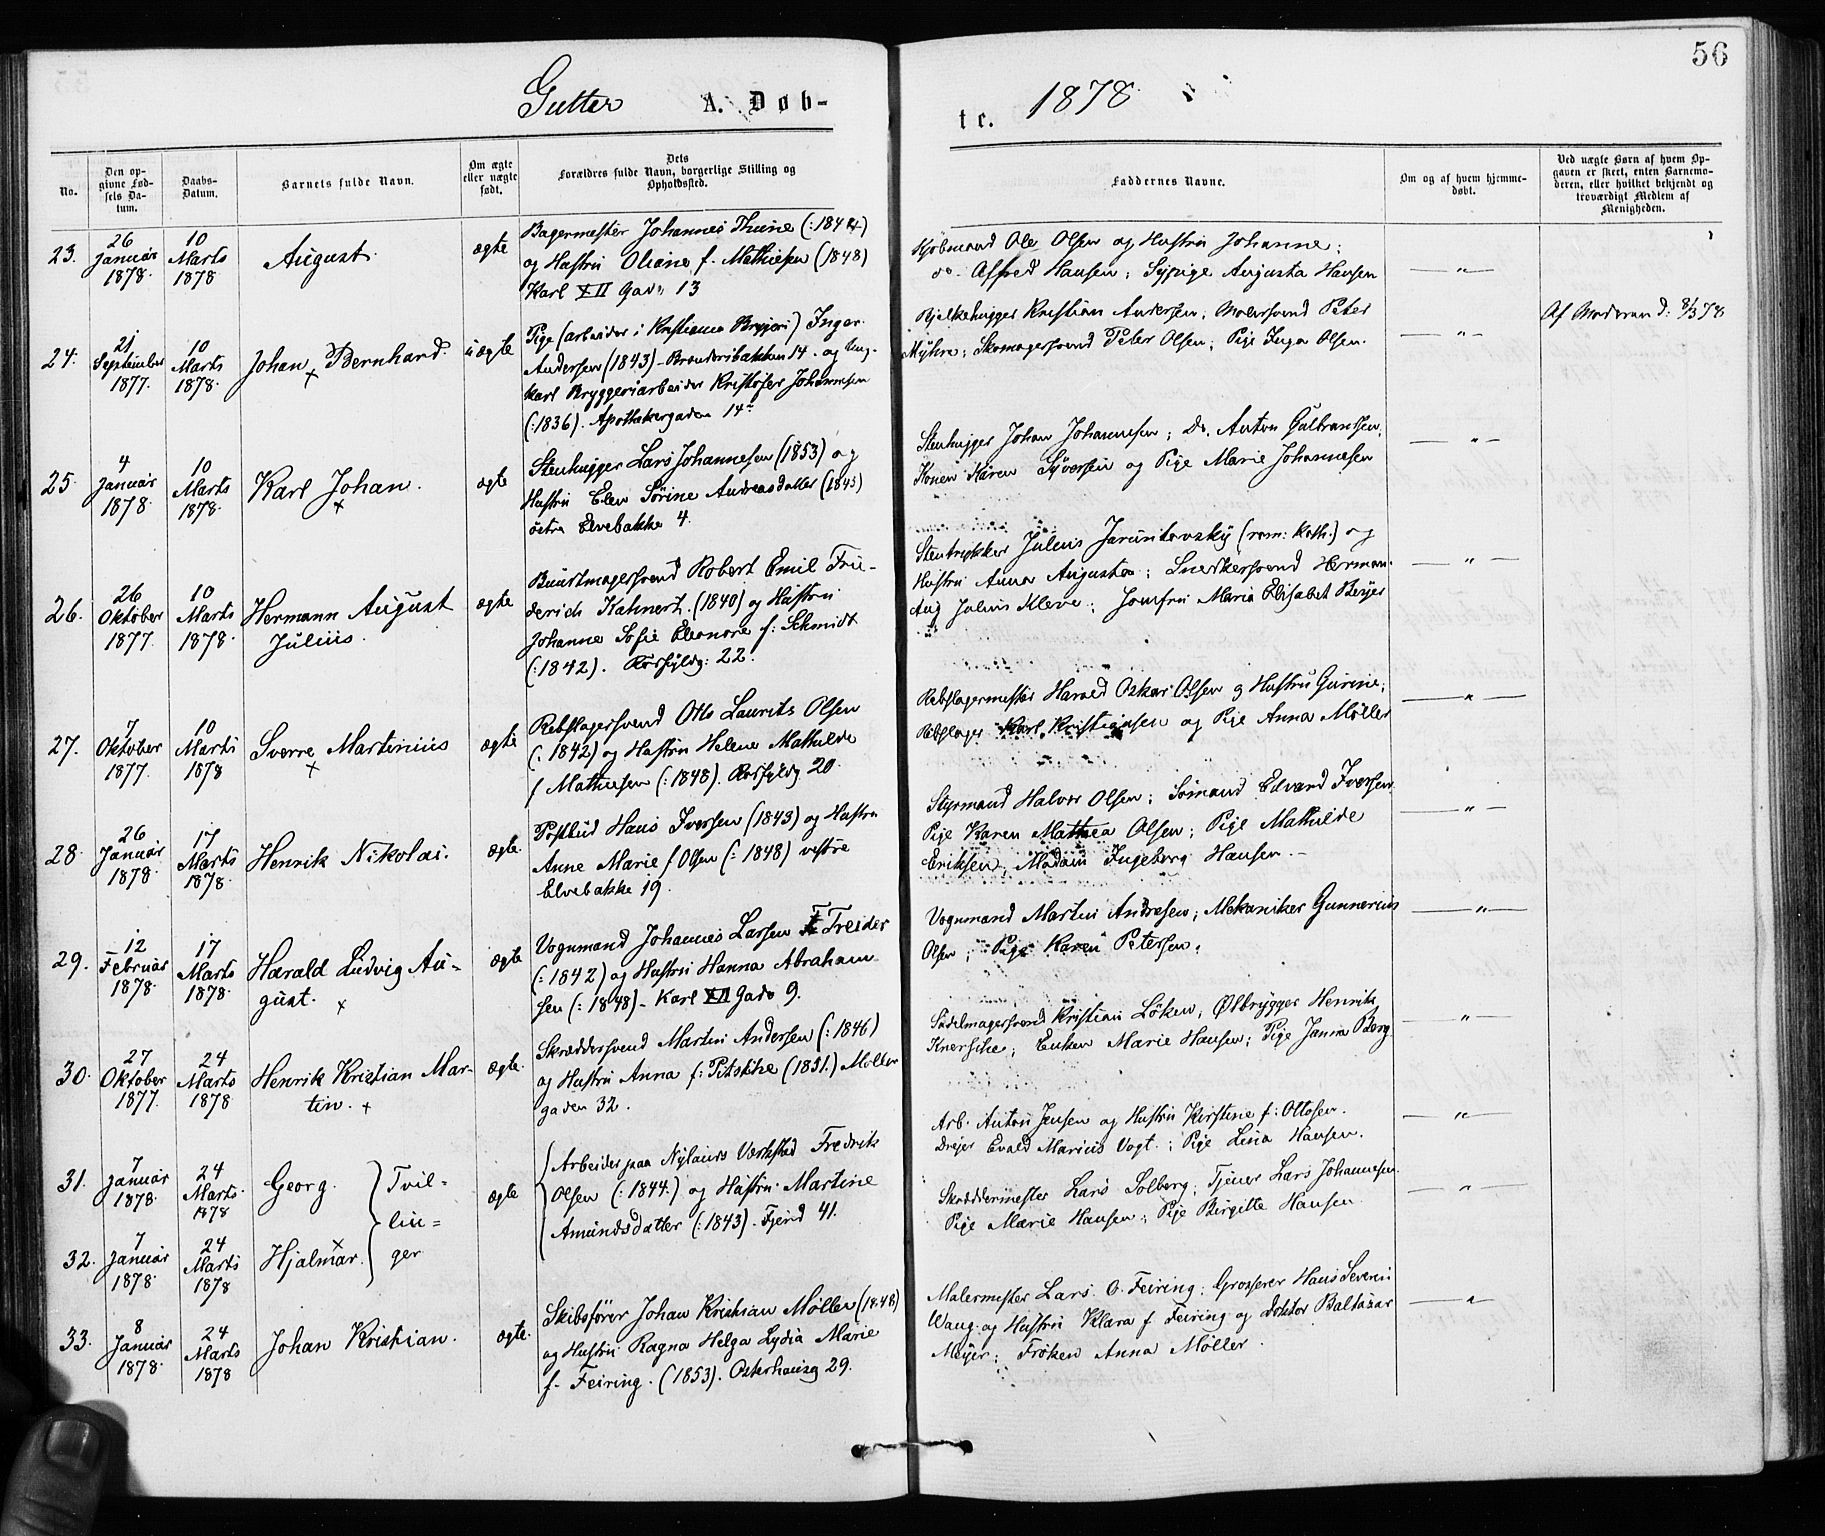 Gutter A. Døb-
No.
Den op-
givne Fød-
sels Da-
tum.
Daabs-
Datum.
Barnets fulde Navn.
Om ægte
eller uægte
født.
Dets
Forældres fulde Navn, borgerlige Stilling og
Opholdssted.
23.
26
Januar
1878.
10
Marts
1878
August.
ægte
Bagermester Johannes Thune (:1844)
og Hustru Oliane f. Mathiesen (1848)
Karl XII Gade 13
24.
21
September
1877.
10
Marts
1878.
Johan Bernhard.
uægte
Pige (arbeider i Kristiania Bryggeri) Inger
Andersen (1843) - Brenneribakken 14. og Ung-
karl Bryggeriarbeider Kristofer Johannesen
(:1836). Apothekergaden 14
25.
4
Januar
1878.
10
Marts
1878.
Karl Johan.
ægte
Stenhugger Lars Johannesen (1853) og
Hustru Elen Sörine Andreasdatter (1845)
östre Elvebakke 4.
26.
26
Oktober
1877.
10
Marts
1878.
Hermann August
Julius.
ægte
Buntmagersvend Robert Emil Frie-
derich Kahnert. (1840) og Hustru
Johanne Sofie Eleonore f: Schmidt
(:1842). Korsfyldg: 22.
27.
7
Oktober
1877.
10
Marts
1878
Sverre Martinius
ægte
Rebslagersvend Otto Laurits Olsen
(:1842) og Hustru Helene Mathilde
f Mathiesen (:1848). Korsfyldg 20.
28.
26
Januar
1878.
17
Marts
1878.
Henrik Nikolai.
ægte.
Postbud Hans Iversen (1843) og Hustru
Anne Marie f Olsen (:1848) vestre
Elvebakke 19.
29.
12
Februar
1878.
17
Marts
1878.
Harald Ludvig Au-
gust.
ægte
Vognmand Johannes Larsen Treider
(:1842) og Hustru Hanna Abraham-
sen (:1848) - Karl XII Gade 9.
30.
27
Oktober
1877.
24
Marts
1878
Henrik Kristian Mar-
tin.
ægte.
Skræddersvend Martin Andersen (:1846)
og Hustru Anna f: Pitschke (1851.) Möller
gaden 32.
31.
7
Januar
1878.
24
Marts.
1878
Georg. Tvil-
lin-
ægte
Arbeider paa Nylands Værksted Fredrik
Olsen (:1844.) og Hustru Martine
Amundsdatter (:1843). Fjerd 41.
32.
7
Januar
1878.
24
Marts
1878
Hjalmar. ger
33.
8
Januar
1878.
24
Marts
1878
Johan Kristian.
ægte.
Skibsförer Johan Kristian Møller (1848)
og Hustru Ragna Helga Lydia Marie
f. Feiring. (1853). Osterhausg 29.
56
te. 1878.
Faddernes Navne.
Om og af hvem hjemme-
døbt.
Ved uægte Børn af hvem Op-
gaven er skeet, enten Barnemo-
deren, eller hvilket bekjendt og
troværdigt Medlem af
Menigheden.
Kjøbmand Ole Olsen og Hustru Johanne;
do- Alfred Hansen; Sypige Augusta Hansen
— " —
Bjelkehugger Kristian Andersen; Malersvend Peter
Myhre; Skomagersvend Peter Olsen; Pige Inga Olsen.
— " —
Af Moderen d. 8/3 78
Stenhugger Johan Johannesen; Do. Anton Gulbransen,
Konen Karen Syversen og Pige Marie Johannesen
— " —
Stentrykker Julius Jaruntovsky (rom: kath.) og
Hustru Anna Augusta; Snedkersvend Herman
Aug Julius Kleve; Jomfru Maria Elisabet Beyer
— " —
Rebslagermester Harald Oskar Olsen og Hustru Gurine;
Rebslager Karl Kristiansen og Pige Anna Møller
— " —
Styrmand Halvor Olsen; Sömand Edvard Iversen
Pige Karen Mathea Olsen; Pige Mathilde
Eriksen; Madam Ingeborg Hansen. -
— " —
Vognmand Martin Andresen; Mekaniker Gunnerius
Olsen; Pige Karen Petersen.
— " —
Sadelmagersvend Kristian Löken; Ølbrygger Henrik
Knersche; Enken Marie Hansen; Pige Janna Berg.
— " —
Arb. Anton Jensen og Hustru Kirstine f. Ottosen.
Drejer Evald Marius Vogt.; Pige Lina Hansen.
— " —
Skræddermester Lars Solberg; Tjener Lars Johannesen.
Pige Marie Hansen; Pige Birgitte Hansen
— " —
Malermester Lars O. Feiring; Grosserer Hans Severin
Waug. og Hustru Klara f Feiring og Doktor Baltazar
Meyer; Fröken Anna Møller.
— " —